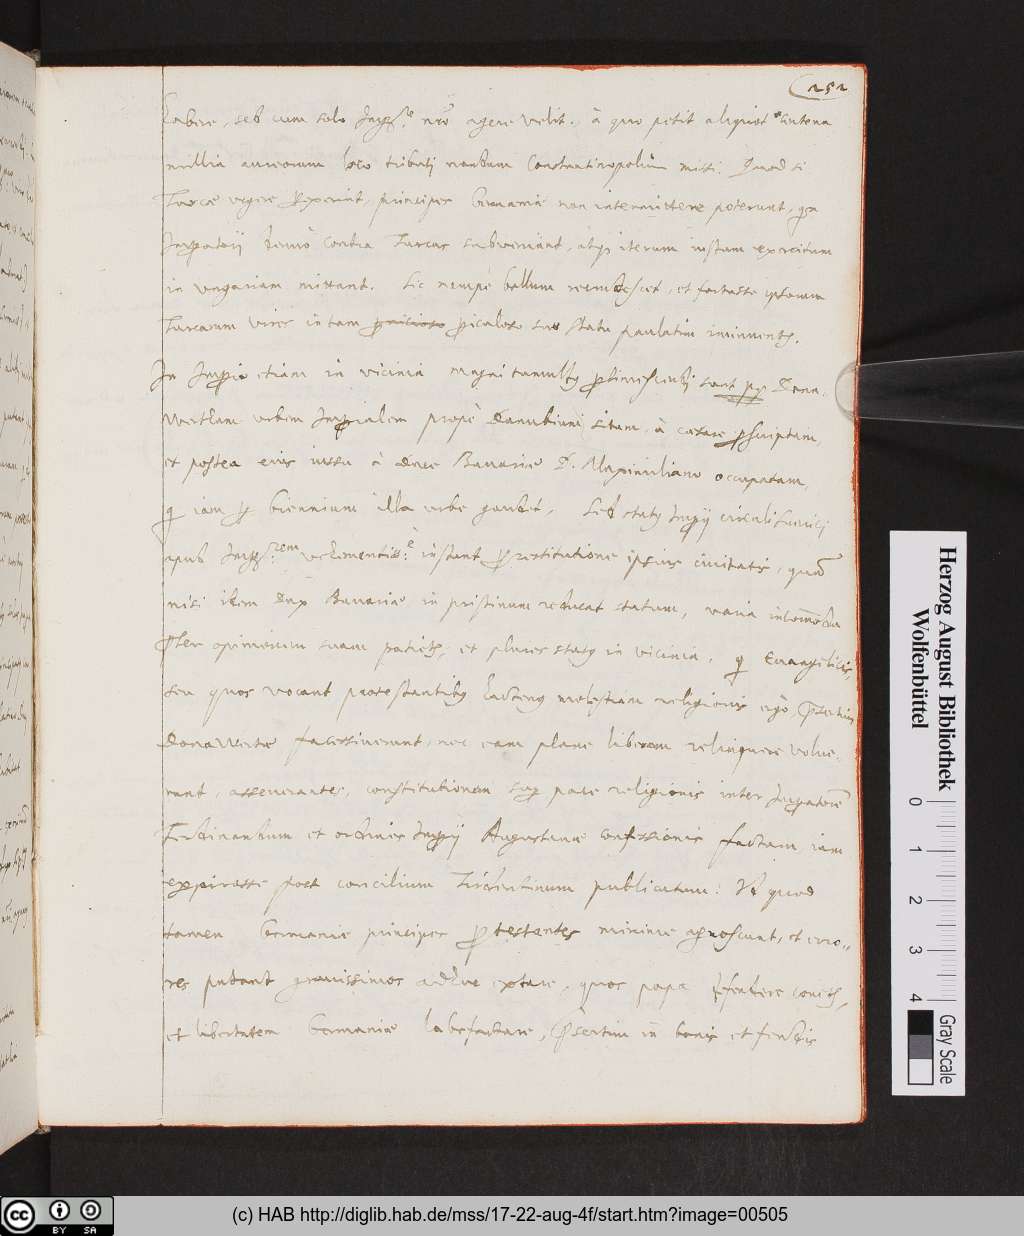 252
habere, sed cum solo Imp.re nro agere velit, à quo petit aliquot centena
millia aureorum loco tributi nondum Constantinopolim missi. Quod si
Turcæ urgere perrexerint, principes Germaniæ non intermittere poterunt,
Imperatori denuo contra Turcas subveniant, atq; iterum iustum exercitum
in Ungariam mittant. Sic nempe bellum recrudescet, et fortasse ipsorum
Turcarum vires in tam periculoso suo statu paulatim imminuentur.
In Imperio etiam in vicinia magni tumultus pertimescendi sunt propter Dona-
Wertham urbem Imperialem propè Danubium sitam, à cæsare proscriptam,
et postea eius iussu à duce Bavariæ D. Maximiliano occupatam,
qui iam per biennium illa urbe gaudet. Sed status Imperij circuli Suevici
apud Imp.rem vehementiss.e instant pro restitutione ipsius civitatis, quam
nisi idem dux Bavariæ in pristinum reducat statum, varia incommoda
præter opinionem suam patietur, et plures status in vicinia, qui Evangelicis,
seu quos vocant protestantibus hactenus molestiam religionis ergò, præsertim
DonaWertæ facessiverunt, nec eam plane liberam relinquere volue-
runt, asseverantes, constitutionem super pace religionis inter Imperatorem
Ferdinandum et ordines Imperij Augustanæ confessionis factam iam
expirasse post concilium Tridentinum publicatum: Id quod
tamen Germaniæ principes protestantes minime agnoscunt, et erro-
res putant gravissimos adhuc extare, quos papa defendere conetur,
et libertatem Germaniæ labefactare, præsertim in bonis et feudis
Herzog August Bibliothek
Wolfenbüttel
0 1 2 3 4
Gray Scale
cc BY SA
(c) HAB http://diglib.hab.de/mss/17-22-aug-4f/start.htm?image=00505